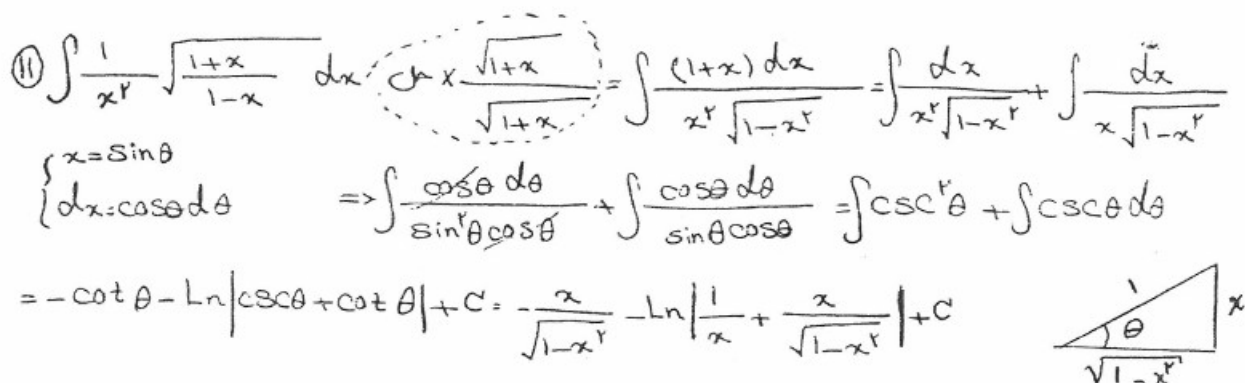 ⑪ ∫ 1/x^۲ √((1+x)/(1-x)) dx × √(1+x)/√(1+x) = ∫ (1+x) dx / (x^۲ √(1-x^۲)) = ∫ dx / (x^۲ √(1-x^۲)) + ∫ dx / (x √(1-x^۲))
{ x=sinθ
{ dx=cosθdθ => ∫ cosθ dθ / (sin^۲θ cosθ) + ∫ cosθ dθ / (sinθ cosθ) = ∫csc^۲θ + ∫cscθdθ
= -cotθ - Ln|cscθ+cotθ| + C = -x/√(1-x^۲) - Ln|1/x + x/√(1-x^۲)| + C
1
θ
x
√(1-x^۲)